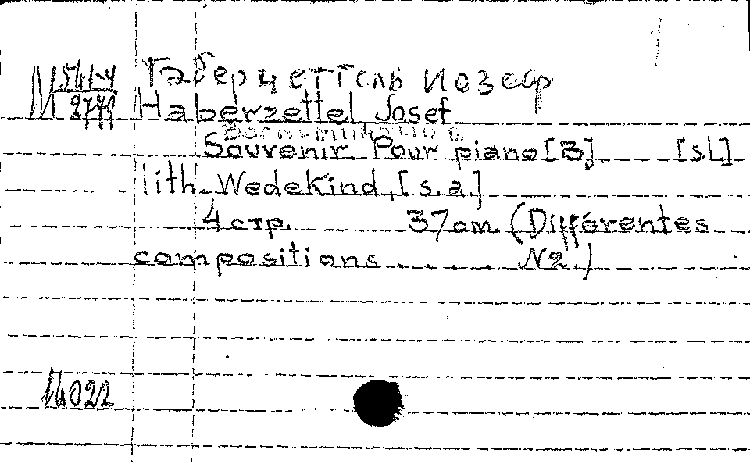 Габерцеттель Иозеф
М
Haberzettel Josef
Воспоминание
Souvenir Pour piano [B] [s.l.]
lith. Wedekind, [s.a.]
4 стр. 37 cm. (Différentes
compositions N2.)
14022